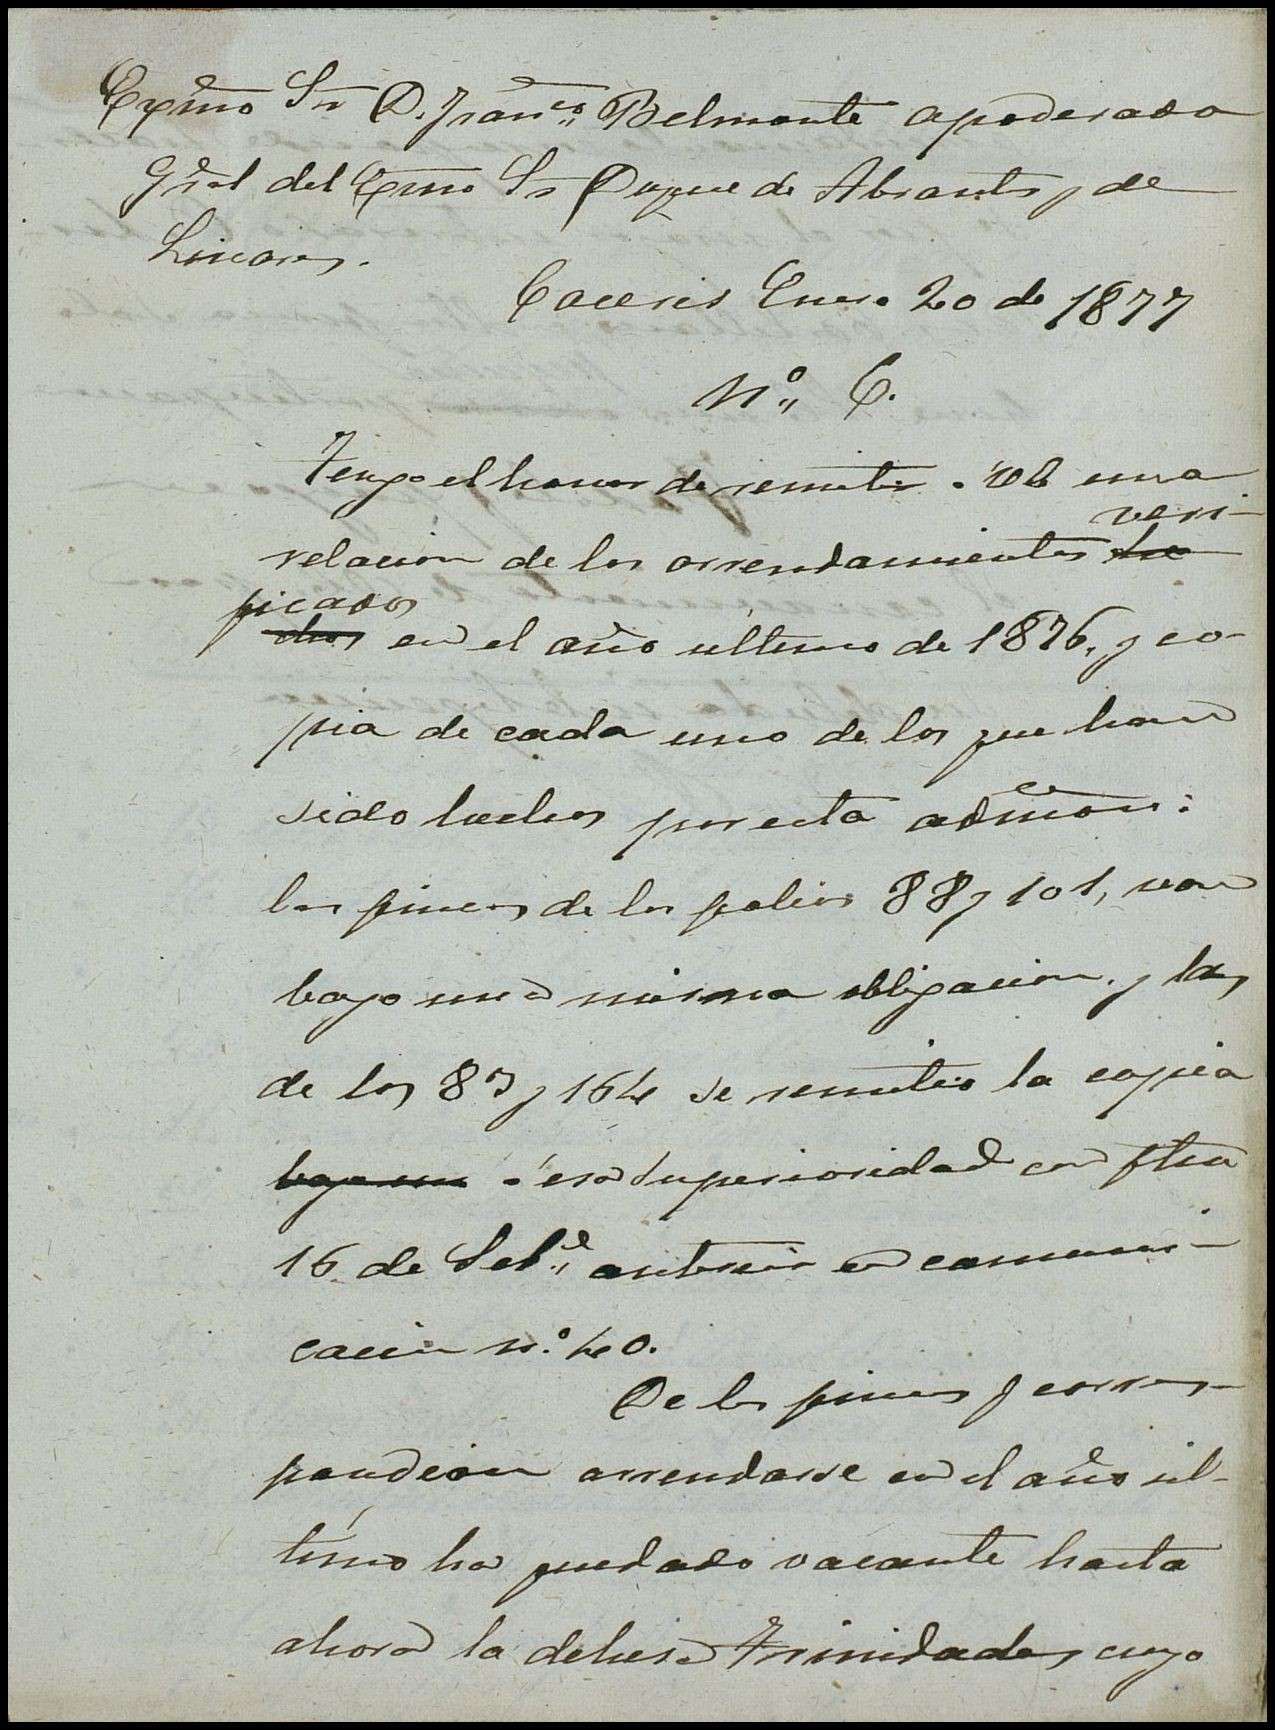 Exmo Sr D. Franco Belmonte apoderado
Gral del Exmo Sr Duque de Abrantes y de
Linares.
Caceres Enero 20 de 1877
No 6.
Tengo el honor de remitir á VE una
veri-
relacion de los arrendamientos he
ficados
chos en el año ultimo de 1876, y co-
pia de cada uno de los que han
sido hechos por esta admon:
las fincas de los folios 88 y 101, van
bajo una misma obligacion, y las
de los 87 y 164 se remitio la copia
bajo una á esa Superioridad con fha
16 de anterior en comuni-
cacion no 40.
De las fincas q corres-
pondian arrendarse en el año ul-
timo ha quedado vacante hasta
ahora la dehesa Trinidades, cuyo